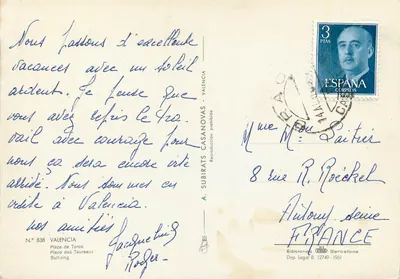 Nous passons d'excellente
vacances avec un soleil
ardent. Je pense que
vous avez repris le tra-
vail avec courage pour
nous ça sera encore vite
arrivé. Nous sommes en
visite à Valencia.
nos amitiés
Jacqueline
Roger
N.º 838 VALENCIA
Plaza de Toros
Place des Taureaux
Bullring
A. SUBIRATS CASANOVAS - VALENCIA
3
PTAS
ESPAÑA
CORREOS
Mme Mr Laitier
8 rue R. Roeckel
Antony-seine
FRANCE
Dep. Legal B. 12749-1961